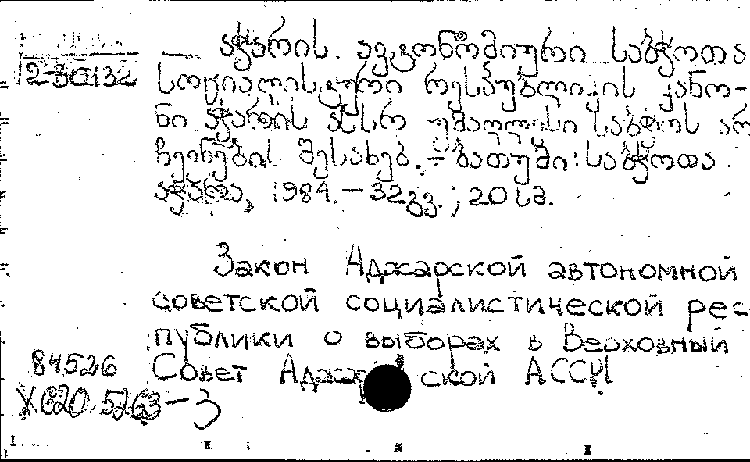 2-30132
აჭარის ავტონომიური საბჭოთა
სოციალისტური რესპუბლიკის კანო-
ნი აჭარის ასსრ უმაღლესი საბჭოს არ
ჩევნების შესახებ. - ბათუმი: საბჭოთა
აჭარა, 1984. - 32 გვ.; 20 სმ.
Закон Аджарской автономной
советской социалистической рес-
публики о выборах в Верховный
Совет Аджарской АССР
84.526